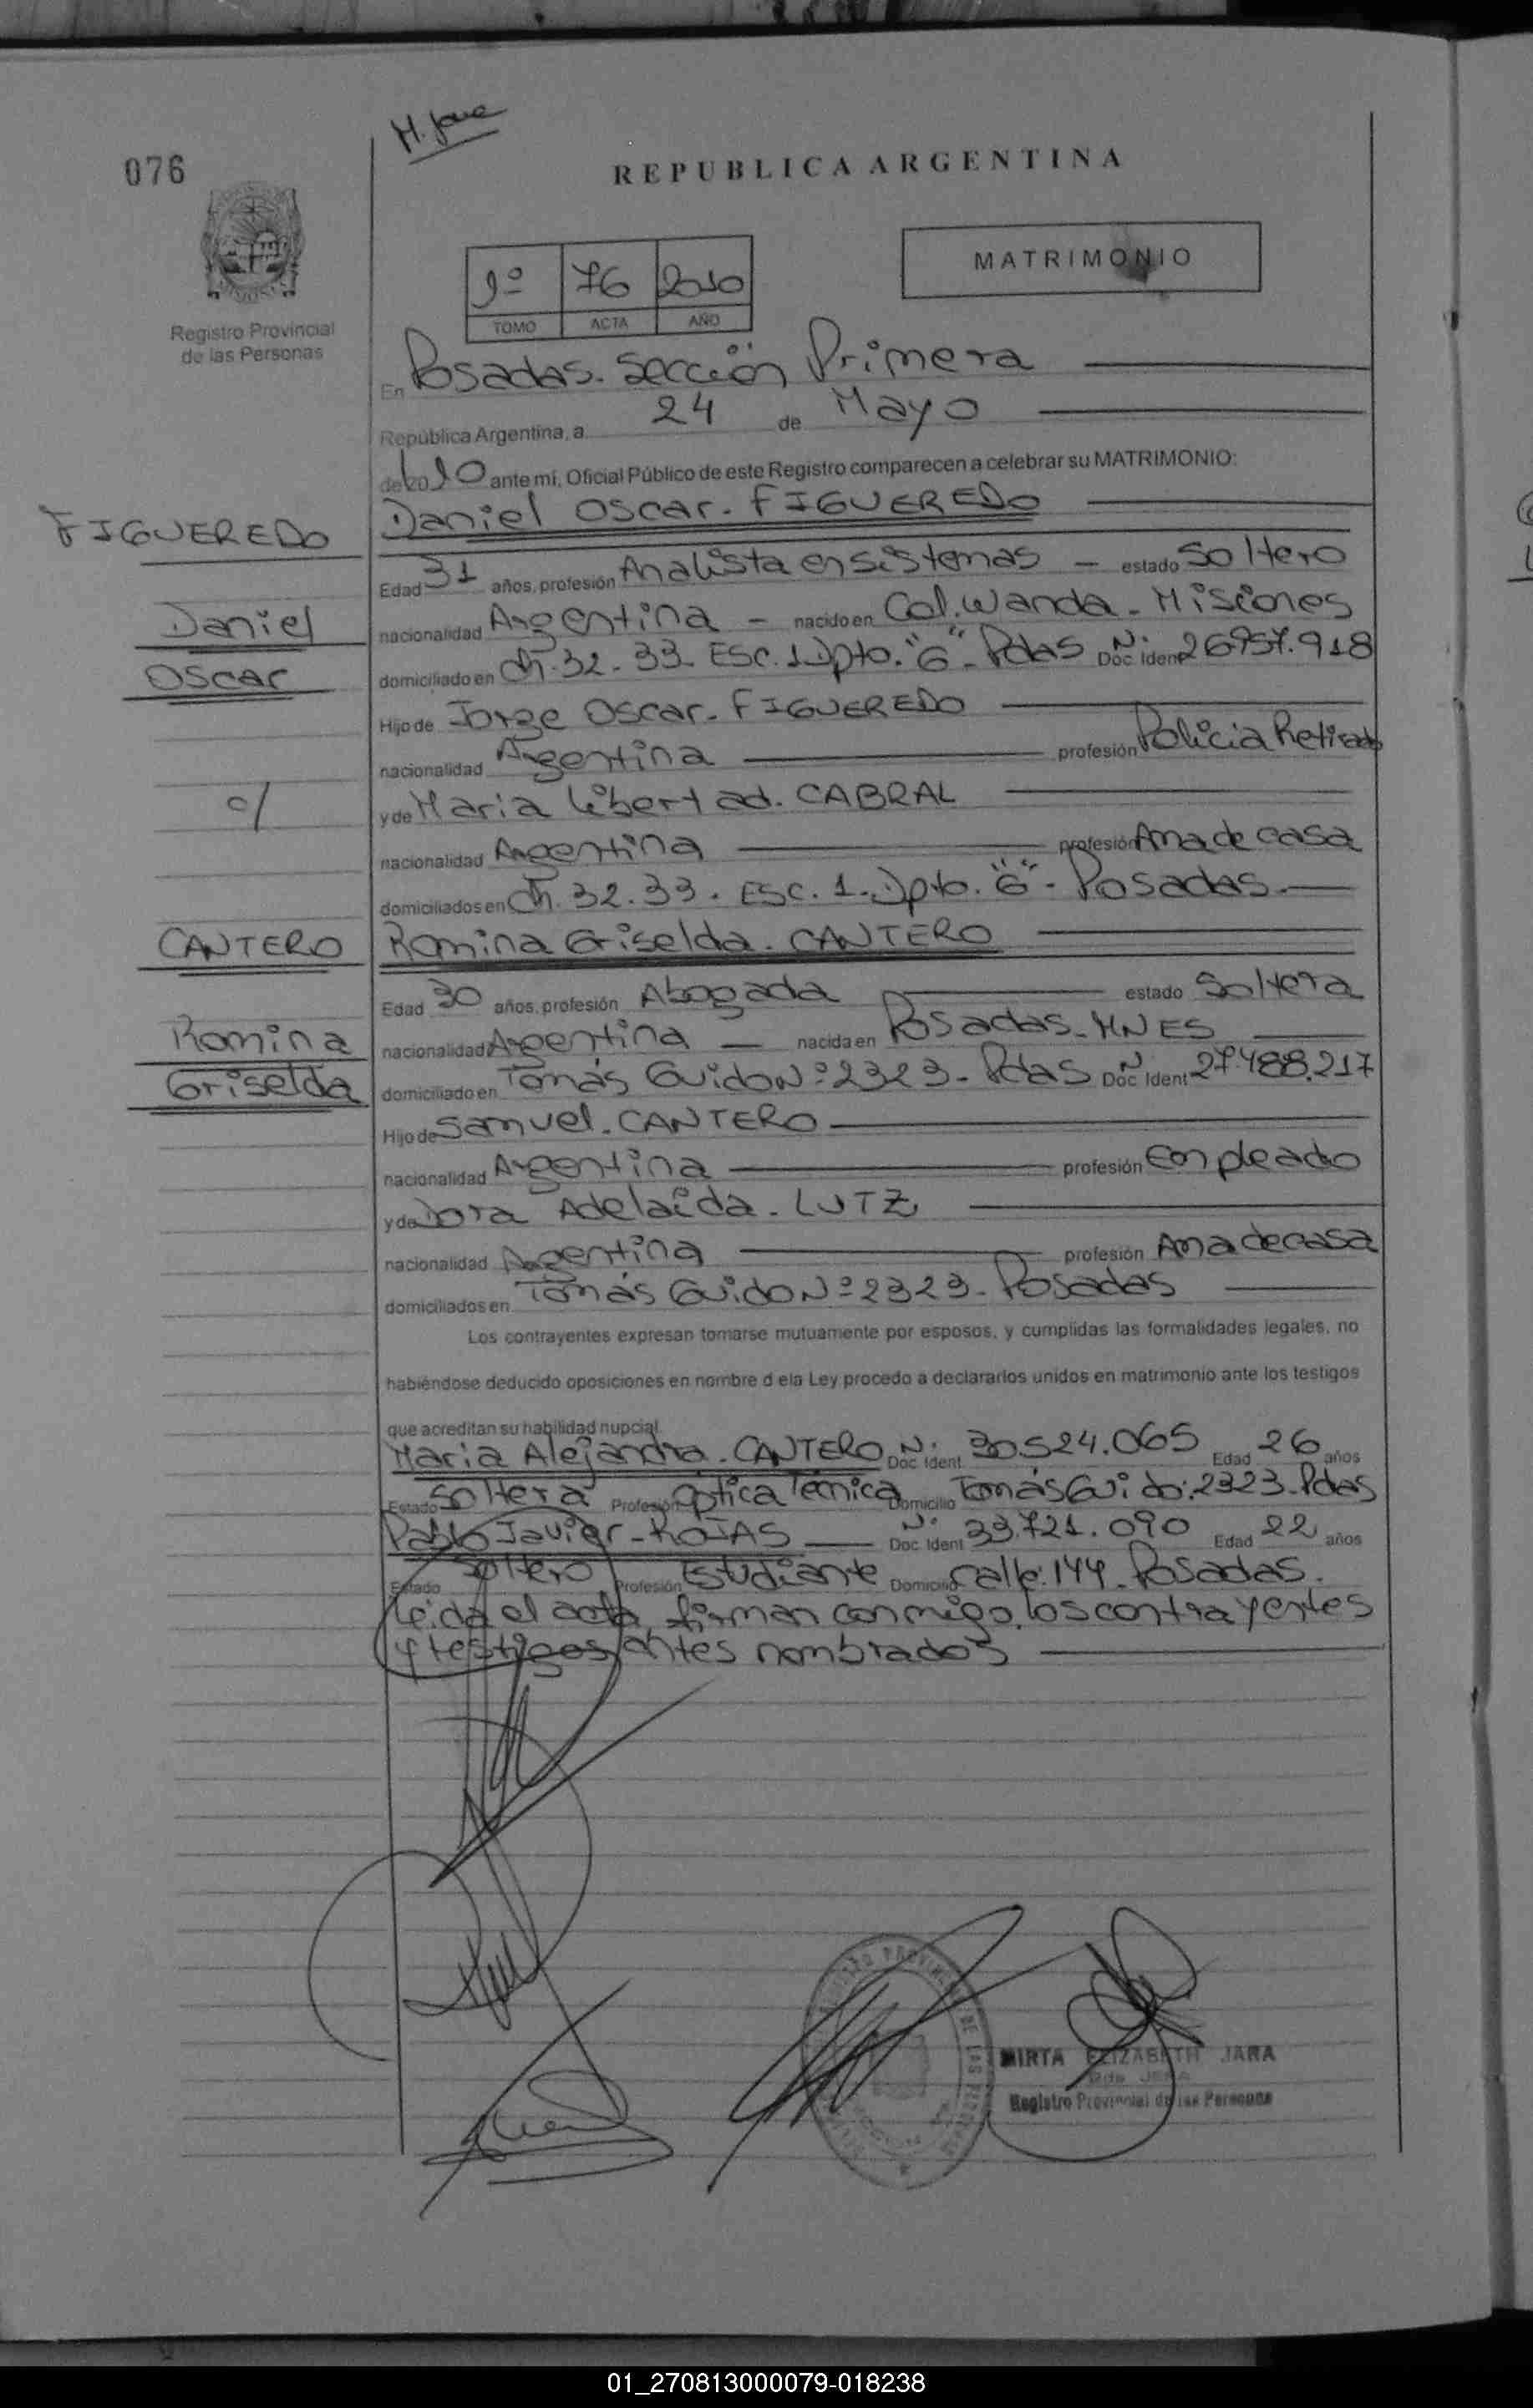 076
REPUBLICA ARGENTINA
MATRIMONIO
1º 76 2010
TOMO ACTA AÑO
Registro Provincial
de las Personas
En Posadas. Sección Primera
República Argentina, a 24 de Mayo
de 2010 ante mí, Oficial Público de este Registro comparecen a celebrar su MATRIMONIO:
FIGUEREDO
Daniel Oscar. FIGUEREDO
Edad 31 años, profesión Analista en sistemas - estado Soltero
Daniel
nacionalidad Argentina - nacido en Col. Wanda - Misiones
Oscar
domiciliado en Ch. 32-33 Esc. 1 Dpto. "G" - Pdas Doc. Ident Nº 26.957.918
Hijo de Jorge Oscar. FIGUEREDO
nacionalidad Argentina profesión Policia Retirado
c/
y de Maria Libertad. CABRAL
nacionalidad Argentina profesión Ama de casa
domiciliados en Ch. 32.33. Esc. 1. Dpto. "G" - Posadas.
CANTERO
Romina Griselda. CANTERO
Edad 30 años, profesión Abogada estado Soltera
Romina
nacionalidad Argentina - nacida en Posadas - MNES
Griselda
domiciliado en Tomás Guido Nº 2323 - Pdas Doc. Ident Nº 27.488.217
Hijo de Samuel. CANTERO
nacionalidad Argentina profesión Empleado
y de Dora Adelaida. LUTZ
nacionalidad Argentina profesión Ama de casa
domiciliados en Tomás Guido Nº 2323 - Posadas
Los contrayentes expresan tomarse mutuamente por esposos, y cumplidas las formalidades legales, no
habiéndose deducido oposiciones en nombre d ela Ley procedo a declararlos unidos en matrimonio ante los testigos
que acreditan su habilidad nupcial.
Maria Alejandra. CANTERO Doc. Ident Nº 30.524.065 Edad 26 años
Estado Soltera Profesión Optica Técnica Domicilio Tomás Guido: 2323 - Pdas
Pablo Javier - ROJAS Doc. Ident Nº 33.721.090 Edad 22 años
Estado Soltero Profesión Estudiante Domicilio Calle: 144 - Posadas.
Leida el acta, firman conmigo, los contrayentes
y testigos antes nombrados
MIRTA ELIZABETH JARA
Registro Provincial de las Personas
01_270813000079-018238